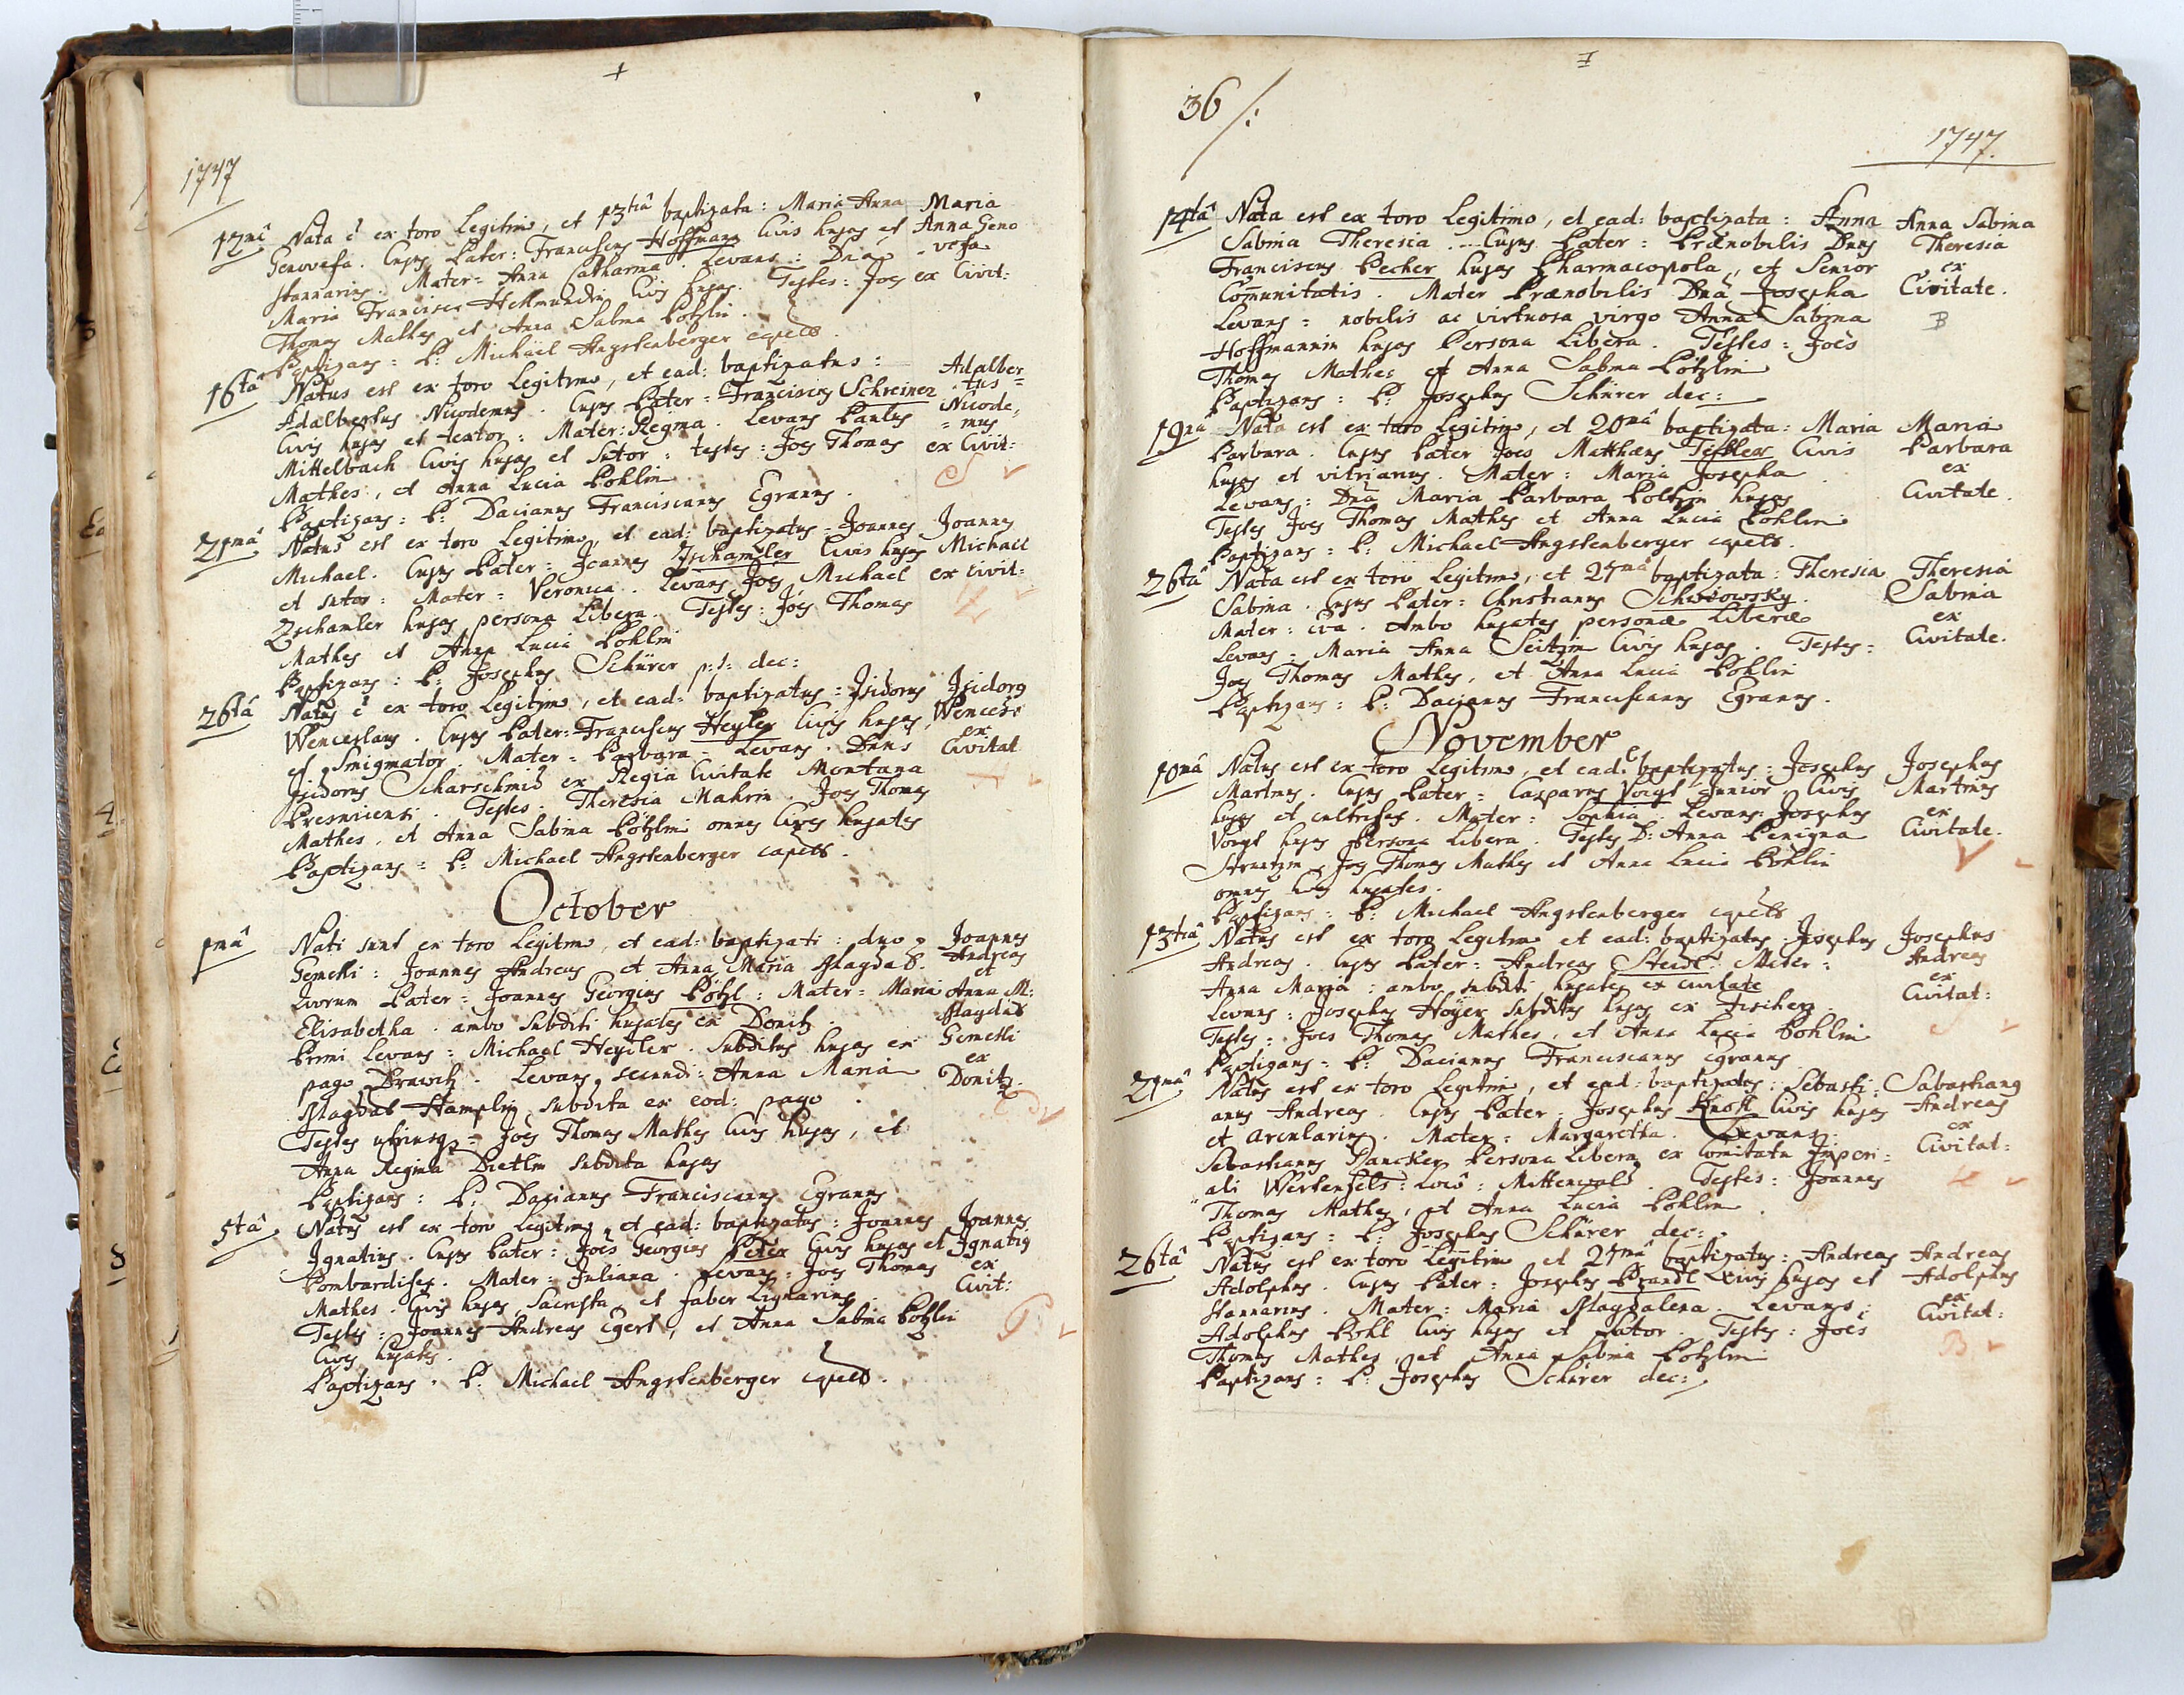 1747
12mâ Nata ê ex toro Legitimo, et 13tiâ baptizata: Maria Anna Maria
Genovefa. Cujus Pater: Franciscus Hoffmann Civis hujas et Anna Geno
stannarius. Mater: Anna Catharina. Levans: Dna vefa
Maria Francisca Hellmundin Civis hujas. Testes: Joes ex Civit:
Thomas Mathes et Anna Sabina Pötzlin.
Baptizans: P: Michael Angstenberger capells.
16tâ Natus est ex toro Legitimo, et ead: baptizatus: Adalber
Adalbertus Nicodemus. Cujus Pater: Franciscus Schreiner tus=
Civis hujas et textor: Mater: Regina. Levans Paulus Nicode=
Mittelbach Civis hujas et Sutor: testes: Joes Thomas =mus
Mathes, et Anna Lucia Pöhlin ex Civit:
Baptizans: P: Dacianus Franciscanus Egranus.
21mâ Natus est ex toro Legitimo, et ead: baptizatus: Joannes Joannes
Michael. Cujus Pater: Joannes Zschamler Civis hujas Michael
et sutor: Mater: Veronica. Levans Joes Michael ex Civit:
Zschamler hujas persona Libera. Testes: Joes Thomas
Mathes et Anna Lucia Pöhlin
Baptizans: P: Josephus Schürer p:t: dec:
26tâ Natus ê ex toro Legitimo, et ead: baptizatus: Isidorus Isidorus
Wenceslaus. Cujus Pater: Franciscus Heyler Civis hujas, Wencesl:
et Smigmator. Mater: Barbara: Levans. Dnus ex
Isidorus Scharschmid ex Regia Civitate Montana Civitat
Presnicensi. Testes: Theresia Mahrin. Joes Thomas
Mathes, et Anna Sabina Pötzlin omnes Cives hujates
Baptizans: P: Michael Angstenberger capells.
October
1mâ Nati sunt ex toro Legitimo, et ead: baptizati: duo Joannes
Gemelli: Joannes Andreas et Anna Maria Magdal. Andreas
Quorum Pater: Joannes Georgius Pötzl: Mater: Maria et Anna M:
Elisabetha. ambo Subditi hujates ex Donitz. Magdal
Primi Levans: Michael Heydler. Subditus hujas ex Gemelli
pago Drawitz. Levans secundi: Anna Maria ex
Magdal Hamplin, subdita ex eod: pago. Donitz.
Testes utriusq = Joes Thomas Mathes Civis hujas, et
Anna Regina Dietlin subdita hujas
Baptizans: P: Dacianus Franciscanus Egranus
5tâ Natus est ex toro Legitimo, et ead: baptizatus: Joannes Joannes
Ignatius. Cujus Pater: Joes Georgius Peter Civis hujas et Ignatius
Bombardista. Mater: Juliana. Levans: Joes Thomas ex
Mathes. Civis hujas, Sacrista et faber Lignarius. Civit:
Testes: Joannes Andreas Egert, et Anna Sabina Pötzlin
Cives hujates.
Baptizans: P: Michael Angstenberger capells.
36/:
1747.
14tâ Nata est ex toro Legitimo, et ead: baptizata: Anna Anna Sabina
Sabina Theresia. Cujus Pater: Prænobilis Dnus Theresia
Franciscus Becher hujas Pharmacopola, et Senior ex
Com̄unitatis. Mater Prænobilis Dna Josepha Civitate.
Levans: nobilis ac virtuosa virgo Anna Sabina B
Hoffmannin hujas Persona Libera. Testes: Joes
Thomas Mathes et Anna Sabina Pötzlin
Baptizans: P: Josephus Schürer dec:
19nâ Nata est ex toro Legitimo, et 20mâ baptizata: Maria Maria
Barbara. Cujus Pater Joes Matthæus Tischler Civis Barbara
hujas et vitriarius. Mater: Maria Josepha ex
Levans: Dna Maria Barbara Poltzin hujas Civitate.
Testes Joes Thomas Mathes et Anna Lucia Pöhlin
Baptizans: P: Michael Angstenberger capells.
26tâ Nata est ex toro Legitimo, et 27mâ baptizata: Theresia Theresia
Sabina. Cujus Pater: Christianus Schwiowsky. Sabina
Mater: Eva. Ambo hujates personæ Liberæ ex
Levans: Maria Anna Seitzin Civis hujas. Testes: Civitate.
Joes Thomas Mathes, et Anna Lucia Pöhlin
Baptizans: P: Dacianus Franciscanus Egranus.
November
10mâ Natus est ex toro Legitimo, et ead: baptizatus: Josephus Josephus
Martinus. Cujus Pater: Casparus Voigt Junior Civis Martinus
hujas et cultrifex. Mater: Sophia. Levans: Josephus ex
Voigt hujas Persona Libera. Testes D: Anna Benigna Civitate.
Joes Thomas Mathes et Anna Lucia Pöhlin
omnes Cives hujates.
Baptizans: P: Michael Angstenberger capells
13tiâ Natus est ex toro Legitimo et ead: baptizatus Josephus Josephus
Andreas. Cujus Pater: Andreas Steidl: Mater: Andreas
Anna Maria: ambo subditi hujates ex Civitate ex
Levans: Josephus Hoyer subditus hujas ex Fischern. Civitat:
Testes: Joes Thomas Mathes, et Anna Lucia Pöhlin
Baptizans: P: Dacianus Franciscanus Egranus
21mâ Natus est ex toro Legitimo, et ead: baptizatus: Sebasti= Sabastianus
anus Andreas. Cujus Pater: Josephus Knoll Civis hujas Andreas
et Arcularius. Mater: Margaretha. Levans: ex
Sebastianus Dancker Persona Libera ex Comitatu Imperi= Civitat:
ali Werdenfels: Loco: Mittenwald. Testes: Joannes
Thomas Mathes, et Anna Lucia Pöhlin.
Baptizans: P: Josephus Schürer dec:
26tâ Natus est ex toro Legitimo et 27mâ baptizatus: Andreas Andreas
Adolphus. Cujus Pater: Josephus Brandl Civis hujas et Adolphus
stannarius. Mater: Maria Magdalena. Levans: ex
Adolphus Pöhl Civis hujas et Sutor. Testes: Joes Civitat:
Thomas Mathes, et Anna Sabina Pötzlin B
Baptizans: P: Josephus Schürer dec: